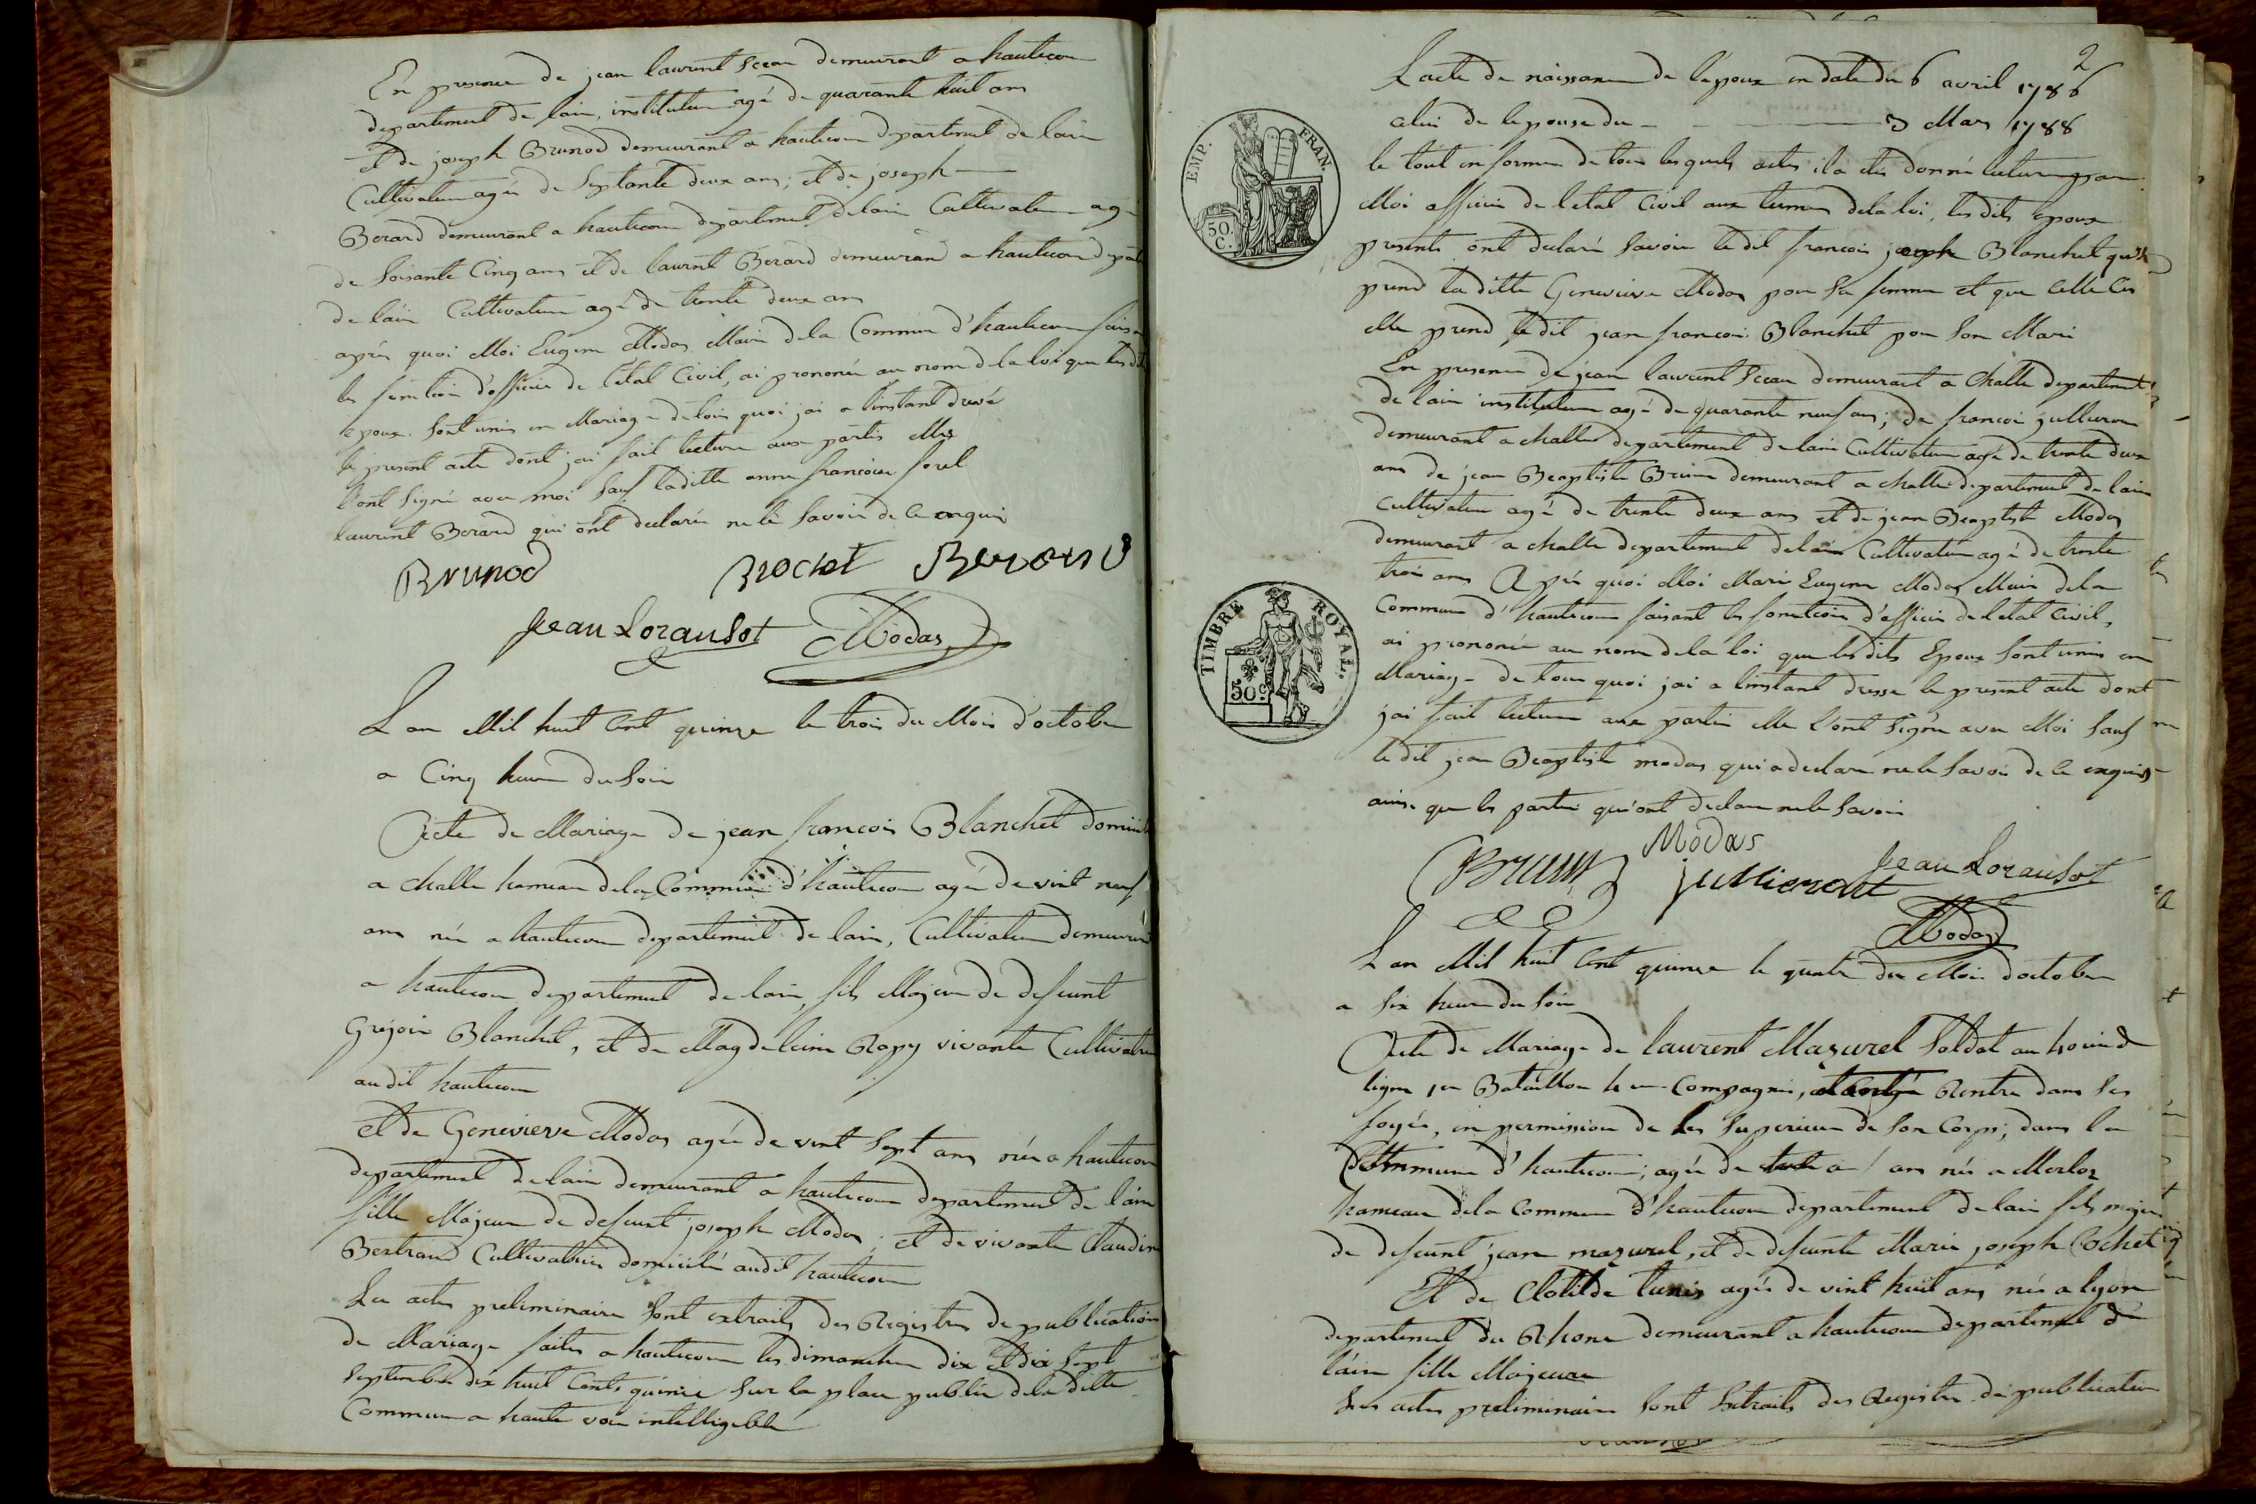 En presence de jean laurent demeurant a hautecour
departement de lain, instituteur agé de quarante huit ans
et de joseph Brunod demeurant a hautecour departement de lain
Cultivateur agé de Septante deux ans; et de joseph
Berard demeurant a hautecour departement de lain Cultivateur agé
de Soisante Cinq ans et de laurent Berard demeurand a hautecour
de lain Cultivateur agé de trente deux ans
après quoi Moi Eugene Modas Maire de la Commune d'hautecour
les fonction d'officier de l'état Civil, ai prononcé au nom de la loi que les
epoux Sont unis en Mariage de tous quoi jai a linstant
le present acte dont jai fait lecture aux partis Elles
l'ont Signé avec moi Sauf laditte anne francoise
laurent Berard qui ont declaré ne le Savoir de ce enquis
Brunod Brochet Berard
Jean Loransot Modas
L an Mil huit Cent quinze le trois du Mois d'octobre
a Cinq heure du Soir
Acte de Mariage de jean francois Blanchet
a Challe hameau de la Commune d'hautecour agé de vint neuf
ans née a hautecour departement de lain, Cultivateur
a hautecour departement de lain, fils Majeur de defeunt
Gréjoir Blanchet, et de Magdeleine vivante
audit hautecour
Et de Genevieve Modas agée de vint Sept ans née a hautecour
departement de lain demeurant a hautecour departement de l'ain
fille Majeure de defeunt joseph Modas; et de vivante Claudine
Bertrand Cultivatrice domicilié audit hautecour
Les actes preliminaire Sont extraits des Registres de publication
de Mariage faites a hautecour les dimanches dix et dix Sept
Septembre dix huit Cents quinze Sur la place public de la ditte
Commune a haute voix intelligeble
2
L acte de naissance de l'époux en date du 6 avril 1786
celui de lepouse du 3 Mars 1788
le tout en forme de tous lesquels actes il a etés donné lecture par
Moi officier de l'etat Civil aux termes de la loi, les dits epoux
presents ont declaré Savoir ledit francois joseph Blanchet
prend la ditte Genevieve Modas pour Sa femme et que Celle Ci
elle prend le dit jean francois Blanchet pour Son Mari
En presence de jean laurent demeurant a Challe departement
de l'ain instituteur agé de quarante neuf ans; de francois
demeurant a challe departement de lain Cultivateur agé de trente deux
ans de jean Beaptiste demeurant a challe departement de lain
Cultivateur agé de trente deux ans et de jean Beaptiste Modas
demeurant a challe departement de lain Cultivateur agé de trente
trois ans Après quoi Moi Marie Eugene Modas Maire de la
Commune d'hautecour faisant les fonction d'officier de l'etat Civil,
ai prononcé au nom de la loi que les dits Epoux Sont unis en
Mariage de tous quoi jai a linstant dresse le present acte dont
jai fait lecture aux partie Elle l'ont Signé avec Moi Sauf
le dit jean Beaptiste modas qui a declare ne le Savoir de ce enquis
ainsi que les partie qui ont declare ne le Savoir
Modas
Jean Loransot
Modas
L an Mil huit Cent quinze le quatre du Mois doctobre
a Six heure du Soir
Acte de Mariage de laurent Mazuret Soldat au
ligne 1er Bataillon Compagnie, Rentre dans Ses
foyés, en permission de les Superieur de Son Corps, dans la
Commune d'hautecour; agée de ans né a
hameau de la Commune d'hautecour departement de lain fils
de defeunt jean mazuret, et de defeunte Marie joseph Cochet
Et de Clotilde tunis agée de vint huit ans née a lyon
departement du Rhone demeurant a hautecour departement de
l'ain fille Majeure
Les actes preliminaire Sont Extraits des Registre de publication
EMP. FRAN.
50. C.
TIMBRE ROYAL.
50 c